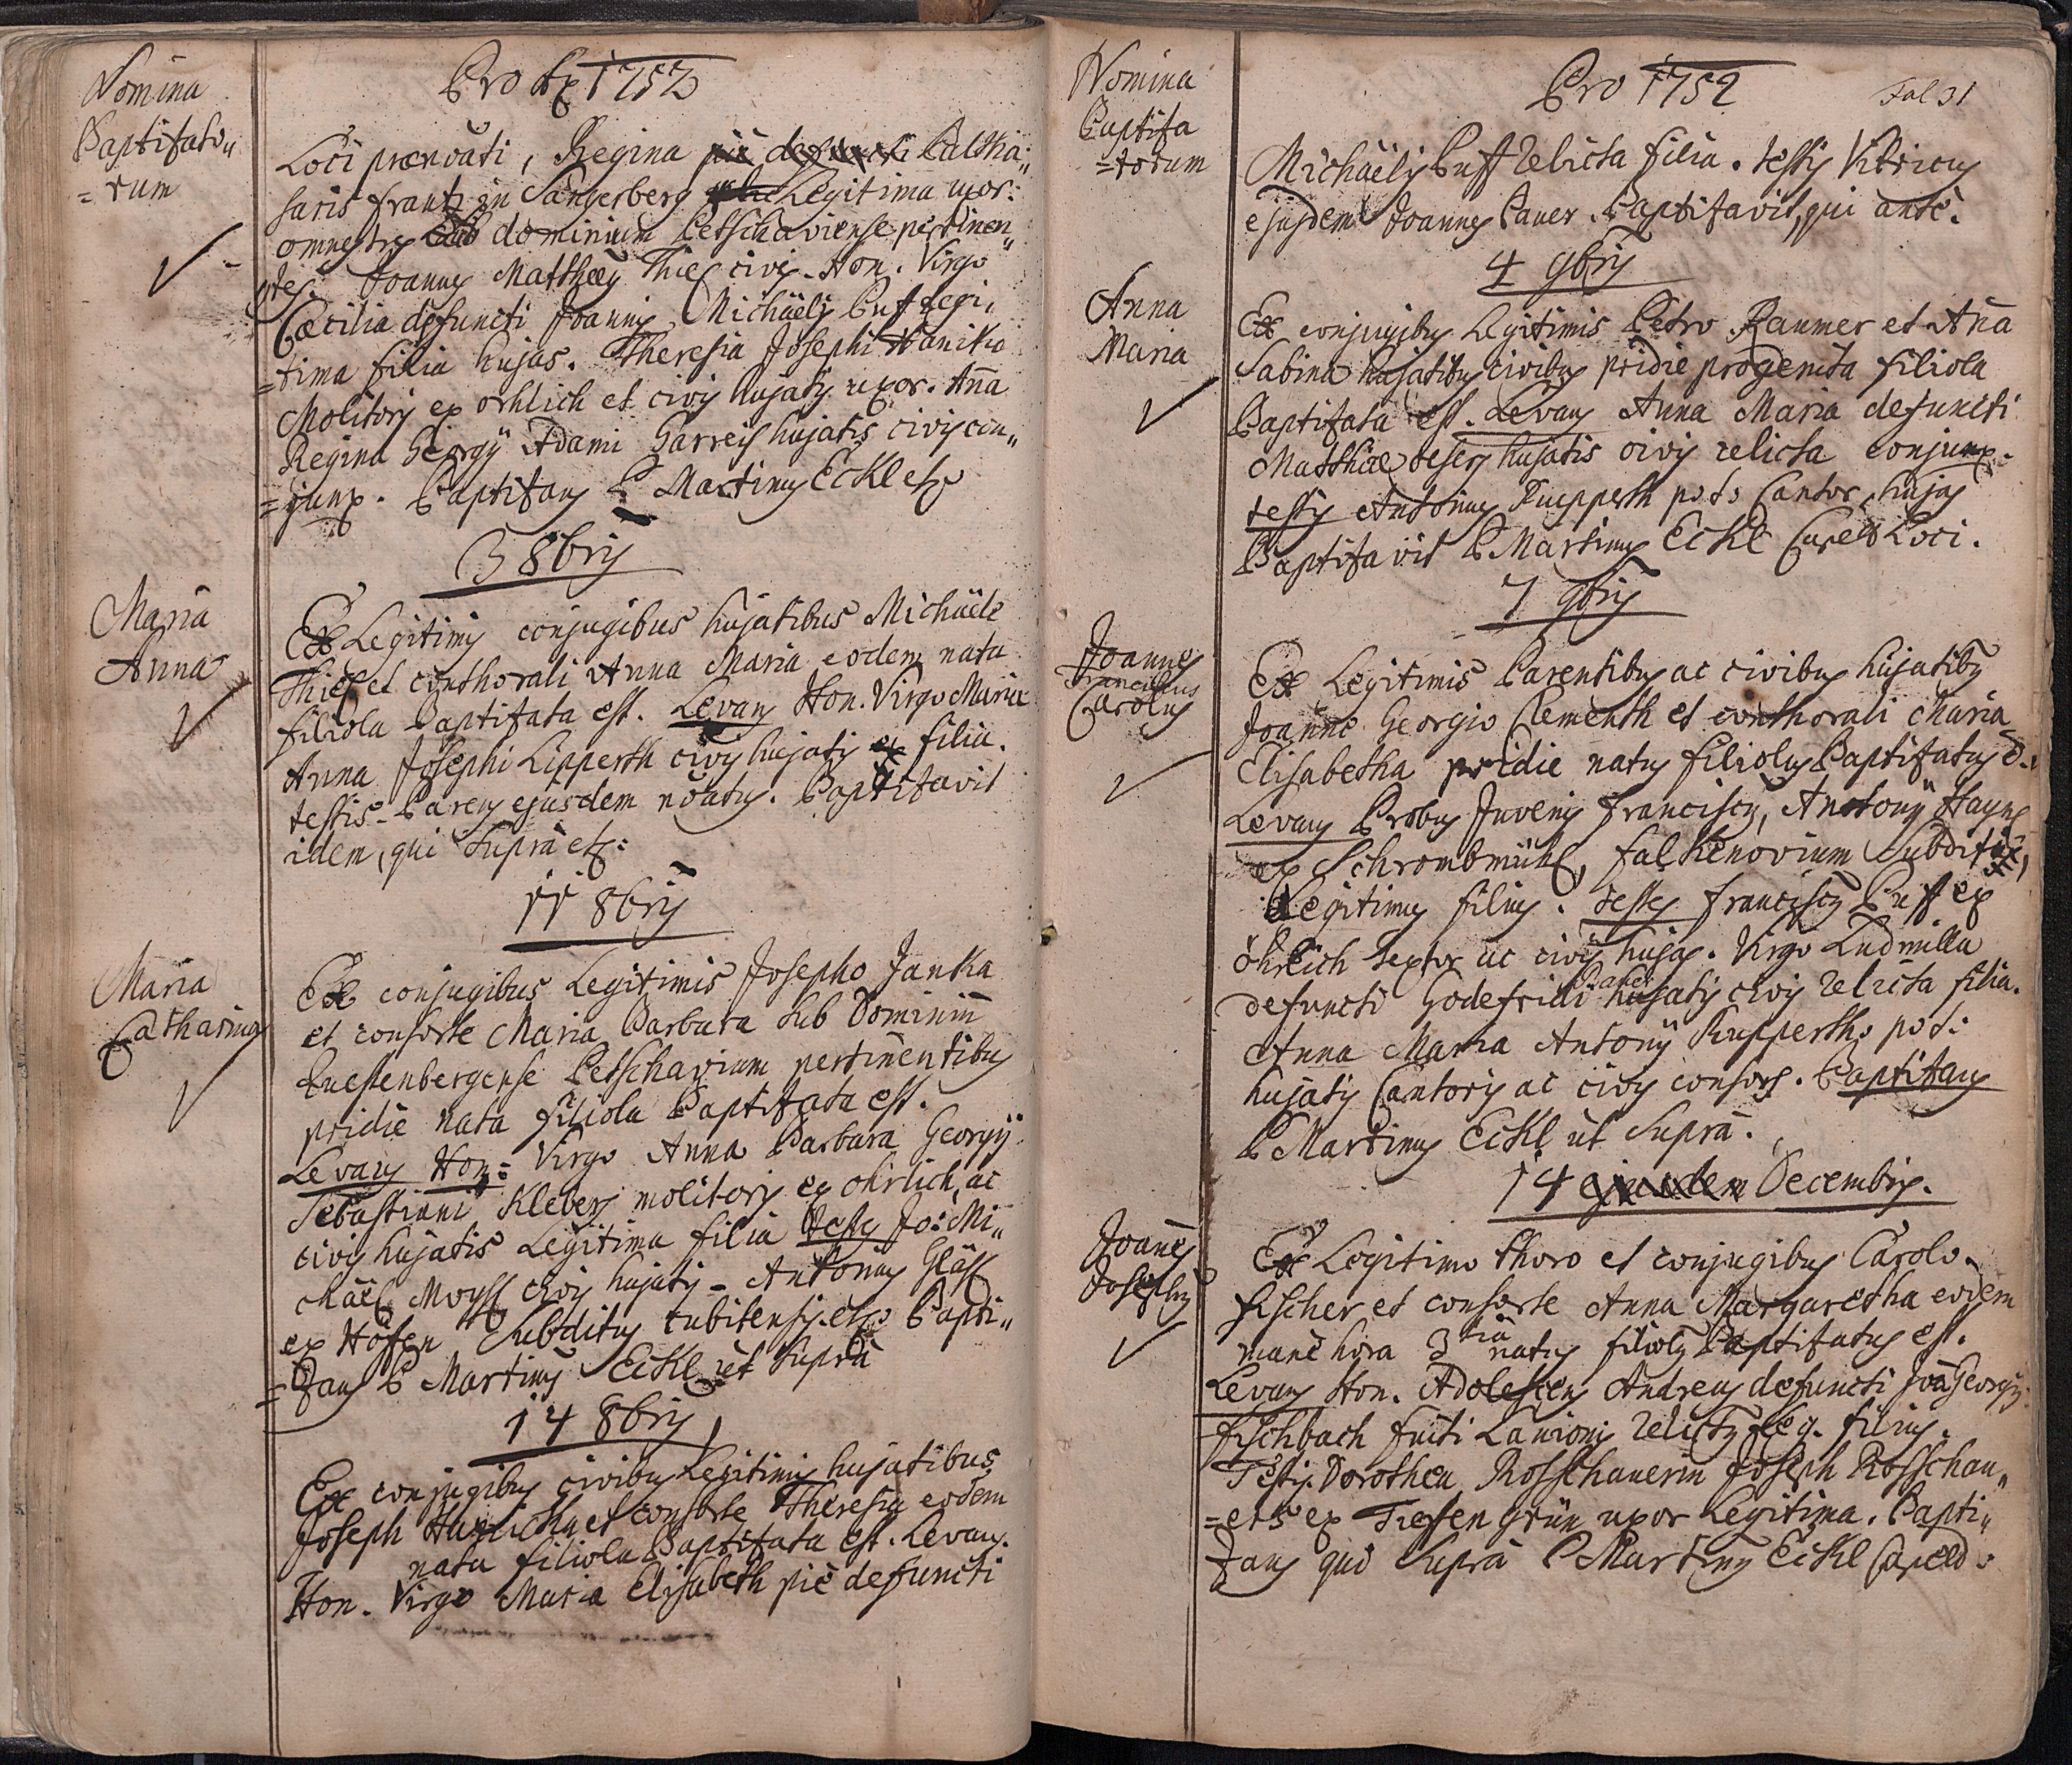 Nomina
Baptisato„
=rum
Pro 1752
Loci prænoati, Regina pie defuncti Baltha„
saris frantz in Sangerberg Legitima uxor:
omnes tres sub dominium Petschaviense pertinen„
=tes. Joannes Matthæus Thiel civis. Hon. Virgo
Cæcilia defuncti Joannis Michäelis Puff legi„
=tima filia hujas. Theresia Josephi Hanika
Molitoris ex ohrlich et civis hujatis uxor. Aña
Regina Georgÿ Adami Garreis hujatis civis con„
=junx. Baptisans P Martinus Eckl etc
3 8bris
Maria
Anna
Ex Legitimis conjugibus hujatibus Michäele
Thiel et conthorali Anna Maria eodem nata
filiola Baptisata est. Levans Hon. Virgo Maria
Anna Josephi Lipperth civis hujatis filia.
testis Parens ejusdem noatus. Baptisavit
idem, qui Supra etc:
11 8bris
Maria
Catharina
Ex conjugibus Legitimis Josepho Janka
et consorte Maria Barbara sub Dominiũ
Questenbergense Petschavium pertinentibus
pridie nata filiola Baptisata est.
Levans Hon: Virgo Anna Barbara Georgÿ
Sebastiani Klebers molitoris ex ohrlich, ac
civis hujatis Legitima filia testes Jo: Mi„
chäel Moyss civis hujatis - Antonius Gläss
ex Höfen Subditus cubitensis. etc Bapti„
=zans P Martinus Eckl ut Supra
14 8bris
Ex conjugibus civibus Legitimis hujatibus
Joseph et consorte Theresia eodem
nata filiola Baptisata est. Levans.
Hon. Virgo Maria Elisabeth pie defuncti
Nomina
Baptisa
=torum
Pro 1752
Fol 31
Michäelis Puff relicta filia. testis Vitricus
ejusdem Joannes Bauer. Baptisavit, qui ante.
4 9bris
Anna
Maria
Ex conjugibus Legitimis Petro Raumer et Aña
Sabina hujatibus civibus pridie progenita filiola
Baptisata est. Levans Anna Maria defuncti
Matthiæ hujatis civis relicta conjunx.
testis Antonius Rupperth p.t. Cantor hujas
Baptisavit P Martinus Eckl Capell Loci.
7 9bris
Joannes
Franciscus
Carolus
Ex Legitimis Parentibus ac civibus hujatibus
Joanne Georgio Clementh et conthorali Maria
Elisabetha pridie natus filiolus Baptisatus ē.
Levans Probus Juvenis franciscus, Antonÿ Hayns
ex Schrombmühl, falkenovium Subditi,
Legitimus filius. testes franciscus Puff ex
öhrlich textor ac civis hujas. Virgo Ludmilla
defuncti Godefridi Bauer hujatis civis relicta filia.
Anna Maria Antonÿ Rupperth p.t.
hujatis Cantoris ac civis consors. Baptisans
P Martinus Eckl ut Supra.
14 ejusdem Decembris.
Joañes
Josephus
Ex Legitimo thoro et conjugibus Carolo
fischer et consorte Anna Margaretha eodem
mane hora 3tia natus filiolus Baptisatus est.
Levans Hon. Adolescens Andreas defuncti Joã Georgÿ
fischbach fuiti Lanionis relictus leg. filius.
Testis. Dorothea Rosschauerin Joseph Rosschau„
=ers ex Tiefengrün uxor Legitima. Bapti„
zans qui Supra P Martinus Eckl Capell